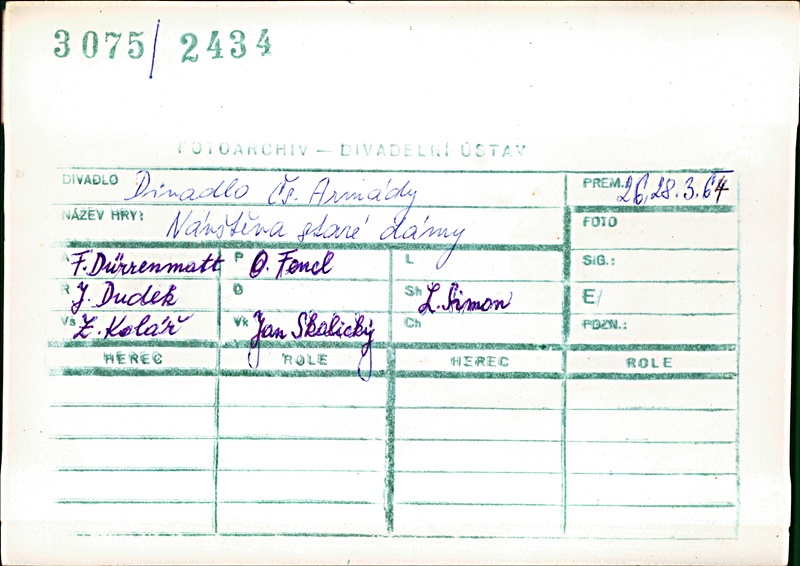 3075/2434
FOTOARCHIV — DIVADELNÍ ÚSTAV
DIVADLO Divadlo čs. Armády PREM. 26., 28. 3. 64
NÁZEV HRY: Návštěva staré dámy FOTO
A F. Dürrenmatt P O. Fencl L SIG.:
R J. Dudek D Sh L. Simon E/
Vs Z. Kolář Vk Jan Skalický Ch POZN.:
HEREC ROLE HEREC ROLE